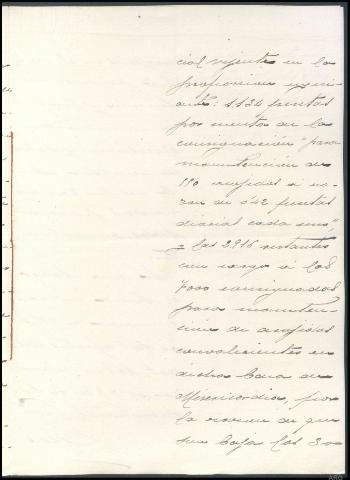 cial vijente en la
proporcion siguie-
ante: 1134 pesetas
por cuenta de la
consignación "para
manutención de
110 asilados a ra-
zon de 0'42 pesetas
diarias cada uno",
y las 2.916 restantes
con cargo á las
7000 consignadas
para manuten-
cion de asilados
convalecientes en
dicha Casa de
Misericordia, por
la razon de que
son baja los 30